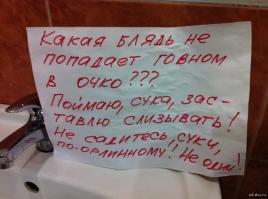 Какая блядь не
попадает говном
в очко???
Поймаю, сука, зас-
тавлю слизывать!
Не садитесь, суки,
по-орлинному!, Не одни!